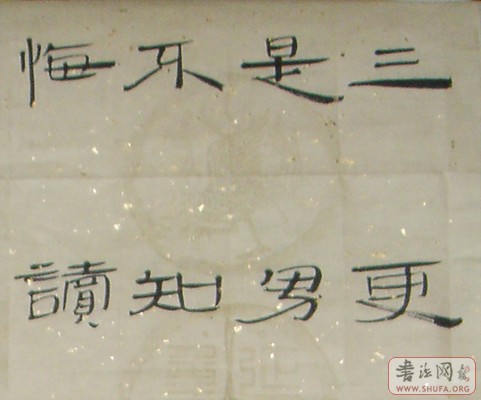 三更
是男
不知
悔讀
書法网
WWW.SHUFA.ORG